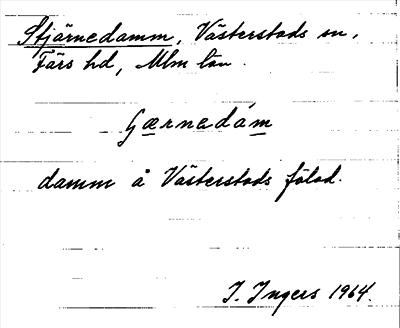 Stjärnedamm, Västerstads sn,
Färs hd, Mlm län.
Gærnedám
damm å Västerstads fälad.
I. Ingers 1964.